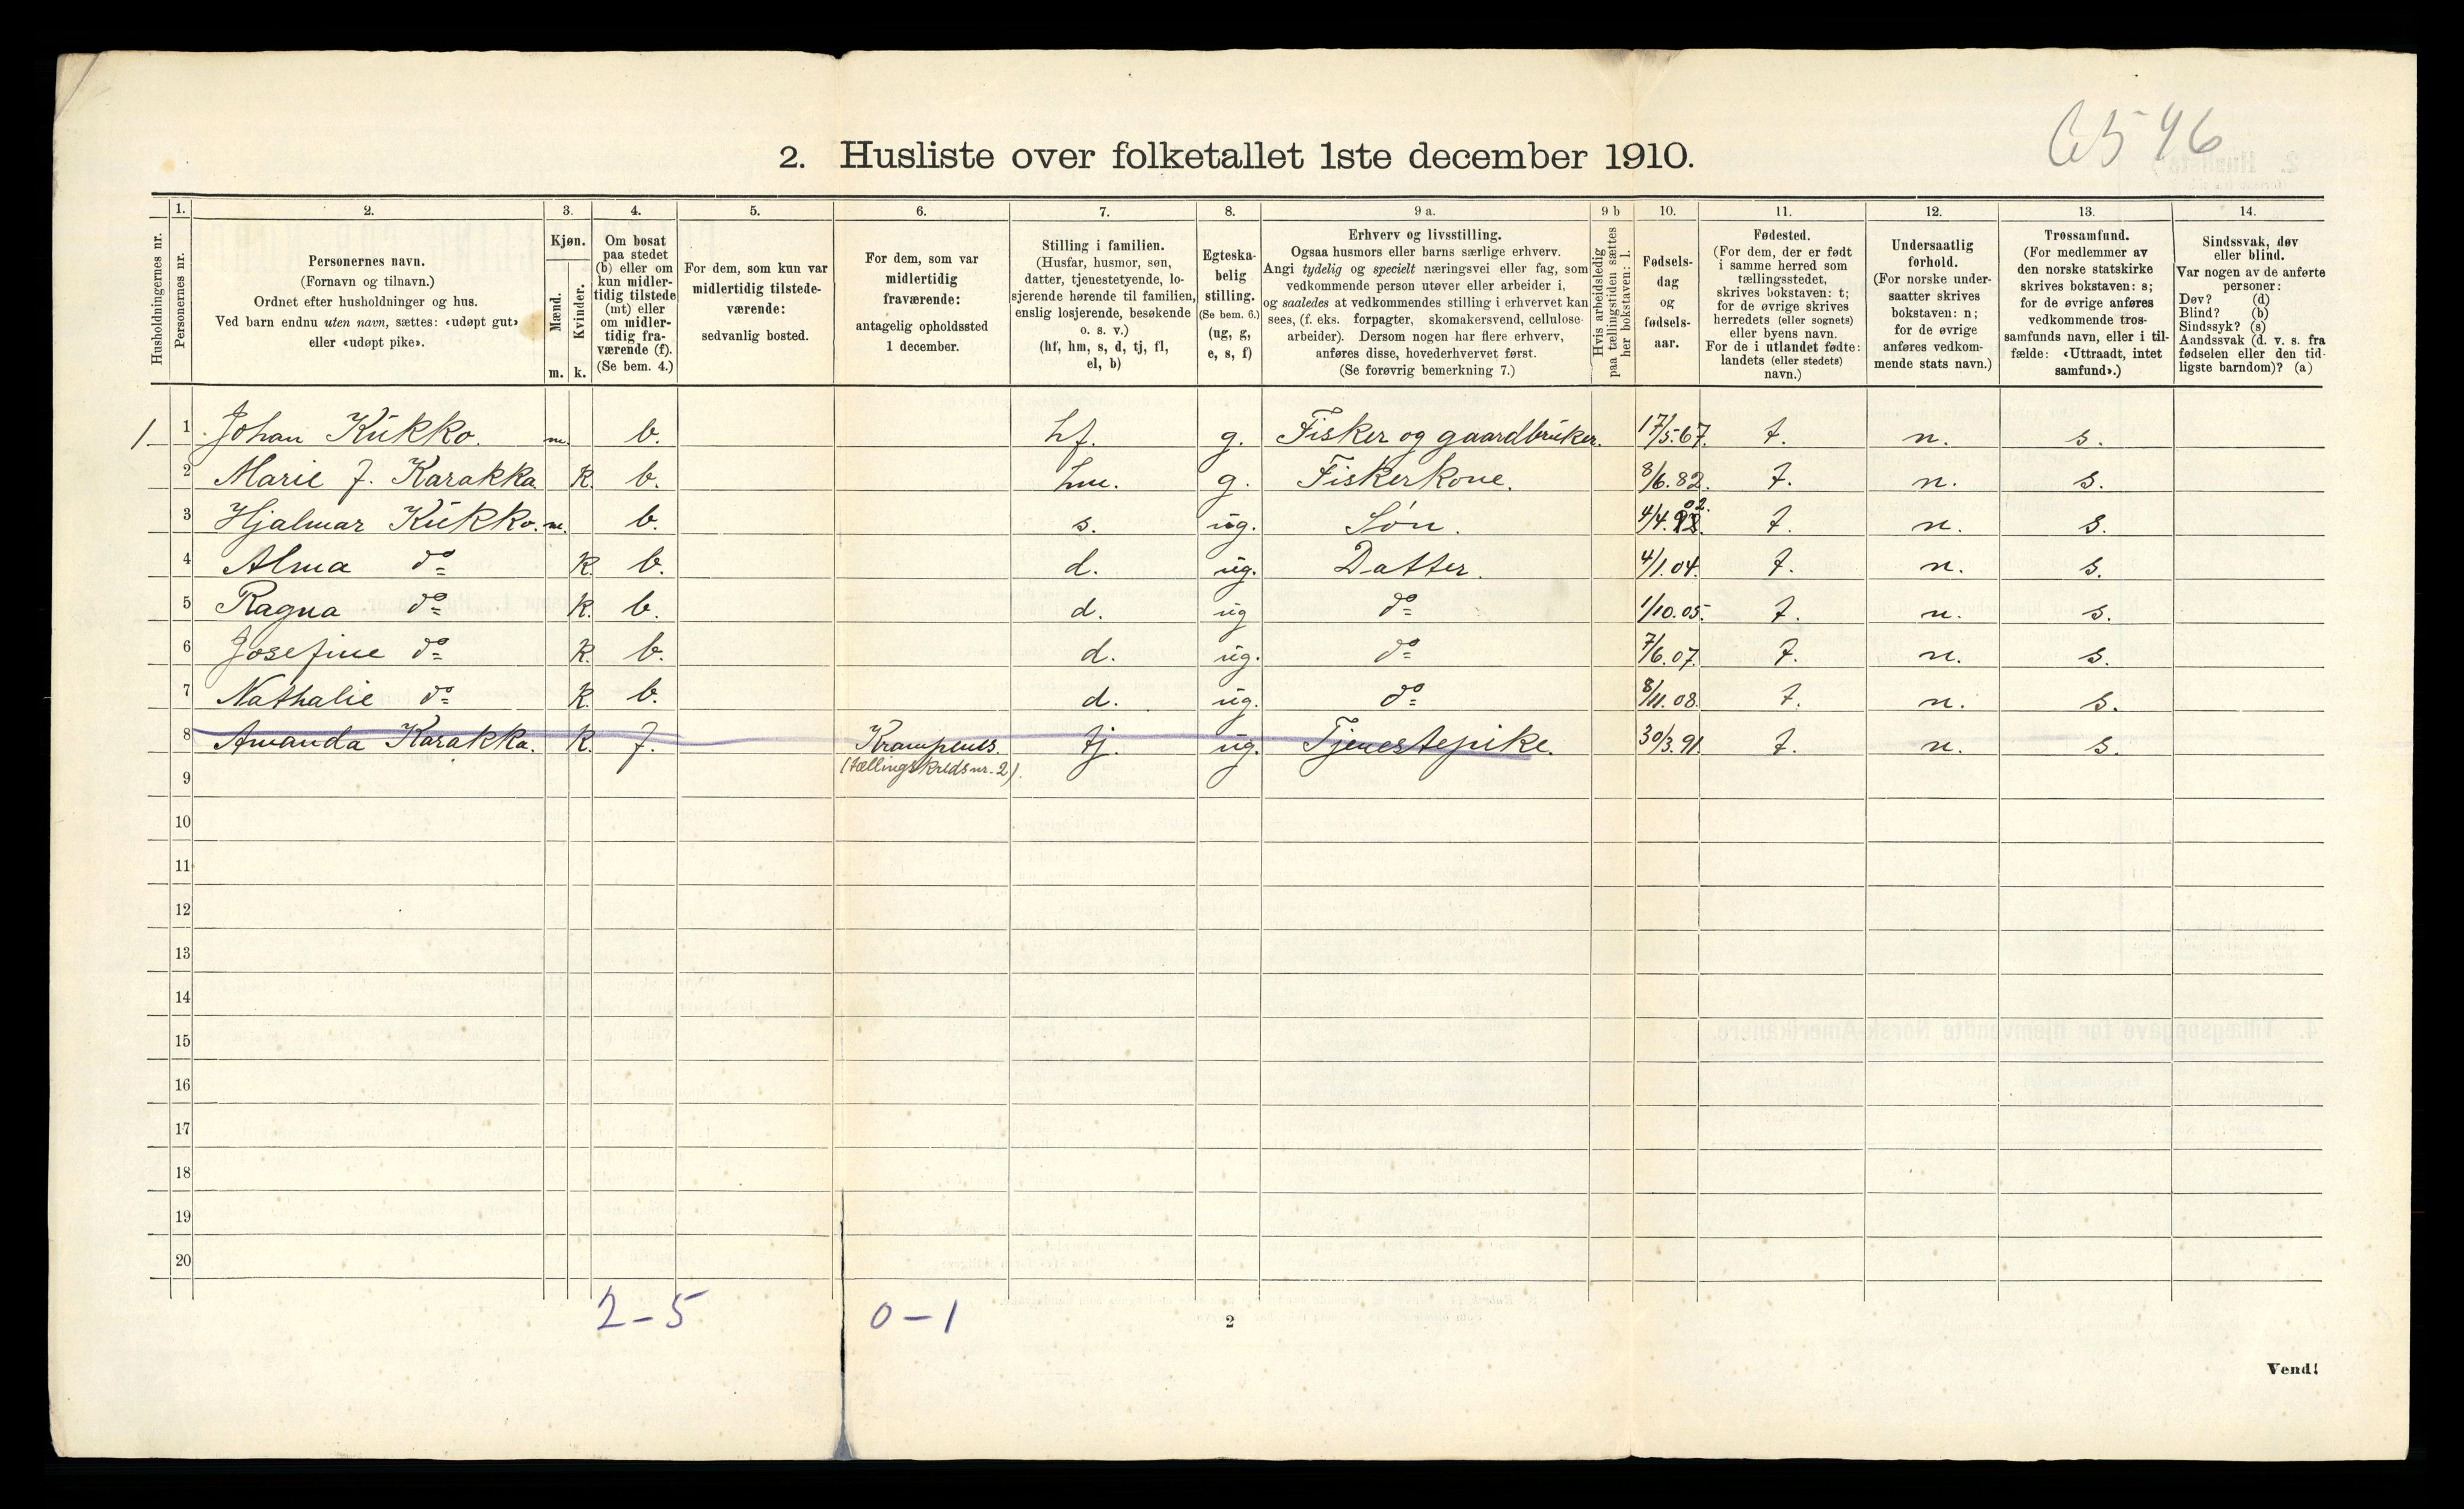 6546
2. Husliste over folketallet 1ste december 1910.
Husholdningernes nr.
1.
Personernes nr.
2.
Personernes navn.
(Fornavn og tilnavn.)
Ordnet efter husholdninger og hus.
Ved barn endnu uten navn, sættes: «udøpt gut»
eller «udøpt pike».
3.
Kjøn.
Mænd.
Kvinder.
m. k.
4.
Om bosat
paa stedet
(b) eller om
kun midler-
tidig tilstede
(mt) eller
om midler-
tidig fra-
værende (f).
(Se bem. 4.)
5.
For dem, som kun var
midlertidig tilstede-
værende:
sedvanlig bosted.
6.
For dem, som var
midlertidig
fraværende:
antagelig opholdssted
1 december.
7.
Stilling i familien.
(Husfar, husmor, søn,
datter, tjenestetyende, lo-
sjerende hørende til familien,
enslig losjerende, besøkende
o. s. v.)
(hf, hm, s, d, tj, fl,
el, b)
8.
Egteska-
belig
stilling.
(Se bem. 6.)
(ug, g,
e, s, f)
9 a.
Erhverv og livsstilling.
Ogsaa husmors eller barns særlige erhverv.
Angi tydelig og specielt næringsvei eller fag, som
vedkommende person utøver eller arbeider i,
og saaledes at vedkommendes stilling i erhvervet kan
sees, (f. eks. forpagter, skomakersvend, cellulose-
arbeider). Dersom nogen har flere erhverv,
anføres disse, hovederhvervet først.
(Se forøvrig bemerkning 7.)
9 b
Hvis arbeidsledig
paa tællingstiden sættes
her bokstaven: l.
10.
Fødsels-
dag
og
fødsels-
aar.
11.
Fødested.
(For dem, der er født
i samme herred som
tællingsstedet,
skrives bokstaven: t;
for de øvrige skrives
herredets (eller sognets)
eller byens navn.
For de i utlandet fødte:
landets (eller stedets)
navn.)
12.
Undersaatlig
forhold.
(For norske under-
saatter skrives
bokstaven: n;
for de øvrige
anføres vedkom-
mende stats navn.)
13.
Trossamfund.
(For medlemmer av
den norske statskirke
skrives bokstaven: s;
for de øvrige anføres
vedkommende tros-
samfunds navn, eller i til-
fælde: «Uttraadt, intet
samfund».)
14.
Sindssvak, døv
eller blind.
Var nogen av de anførte
personer:
Døv? (d)
Blind? (b)
Sindssyk? (s)
Aandssvak (d. v. s. fra
fødselen eller den tid-
ligste barndom)? (a)
1 1 Johan Kukko. m. b. hf. g. Fisker og gaardbruker. 17/5.67. t. n. s.
2 Marie J. Karakka k. b. hm. g. Fiskerkone. 8/6.82. t. n. s.
3 Hjalmar Kukko. m. b. s. ug. Søn. 4/4.02. t. n. s.
4 Alma do k. b. d. ug. Datter. 4/1.04. t. n. s.
5 Ragna do k. b. d. ug do 1/10.05. t. n. s.
6 Josefine do k. b. d. ug. do 7/6.07. t. n. s.
7 Nathalie do k. b. d. ug. do 8/11.08. t. n. s.
8 Amanda Karakka. k. f. Krampenes. tj. ug. Tjenestepike. 30/3.91. t. n. s.
(tællingskreds nr. 2)
9
10
11
12
13
14
15
16
17
18
19
20
2-5 0-1
2
Vend!